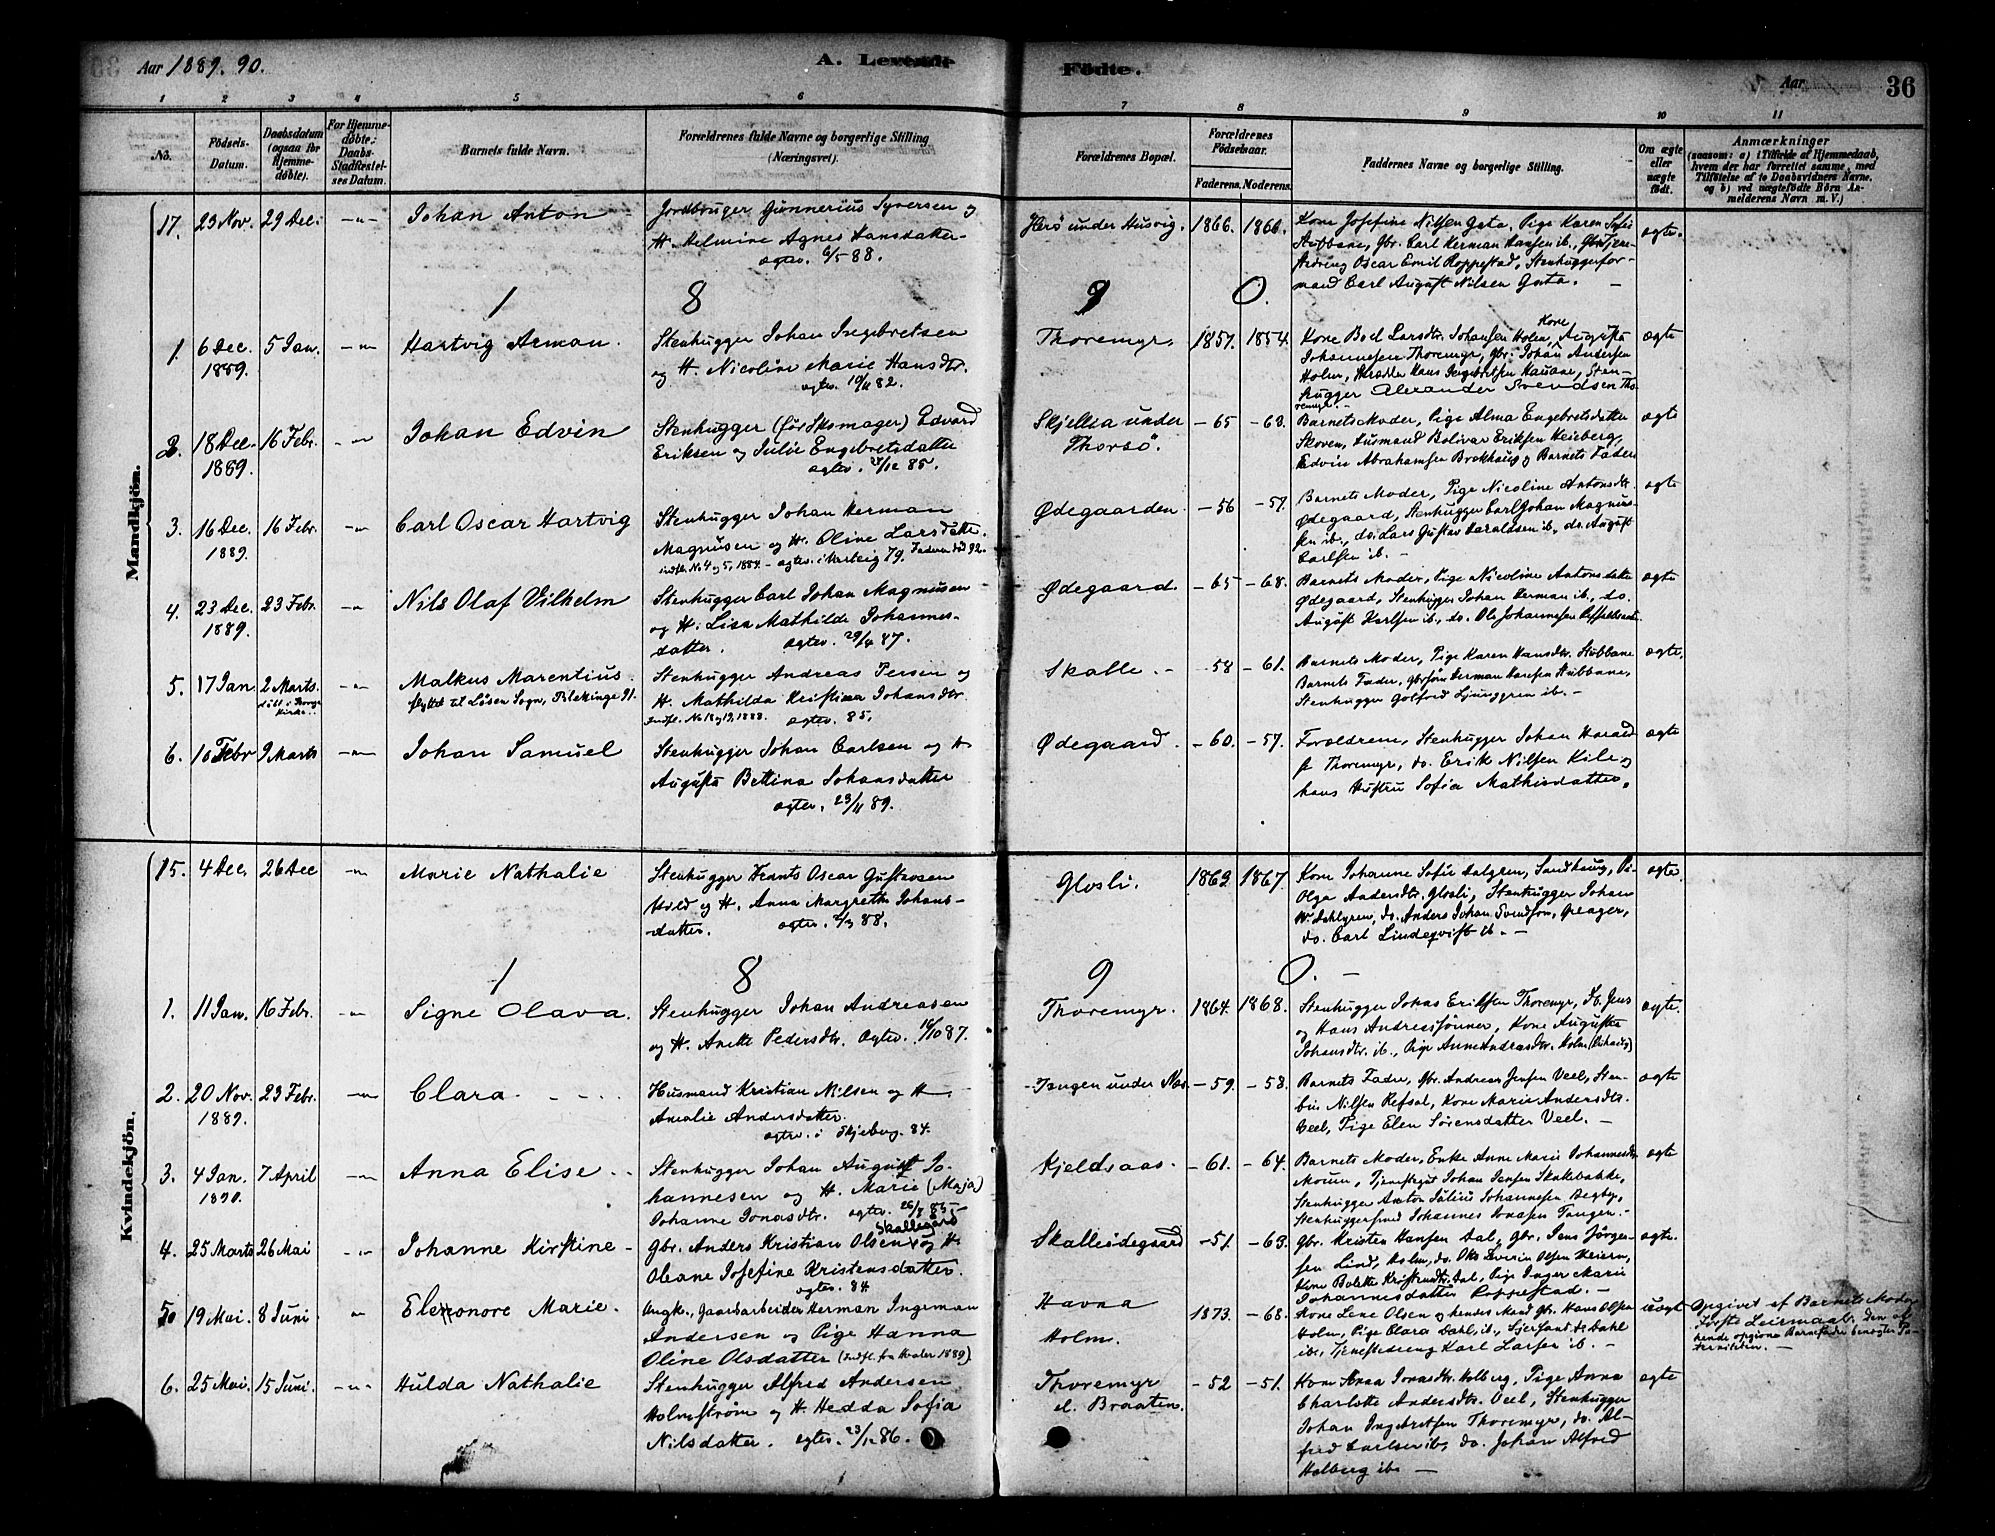 Aar 1889. 90.
A. Levende
Födte.
Aar
36
1 2 3 4 5 6 7 8 9 10 11
No.
Födsels-
Datum.
Daabsdatum
(ogsaa for
Hjemme-
döbte).
For Hjemme-
döbte:
Daabs-
Stadfæstel-
ses Datum.
Barnets fulde Navn.
Forældrenes fulde Navne og borgerlige Stilling
(Næringsvei).
Forældrenes Bopæl.
Forældrenes
Födselsaar.
Faderens.
Moderens.
Faddernes Navne og borgerlige Stilling.
Om ægte
eller
uægte
födt.
Anmærkninger
(saasom: a) i Tilfælde af Hjemmedaab,
hvem der har forrettet samme, med
Tilföielse af to Daabsvidners Navne,
og b) ved uægtefödte Börn An-
melderens Navn m. V.)
Mandkjön.
17. 23 Nov. 29 Dec. Johan Anton
Jordbruger Gunnerius Syversen og
H. Helmine Agnes Hansdatter
ægtev. 6/5 88.
Herö under Husvig. 1866. 1866.
Kone Josefine Nilsen Gata, Pige Karen Sofie
Stubbane, Gbr. Carl Herman Hansen ib., Tjene-
stedreng Oscar Emil Roppestad, Stenhuggerfor-
mand Carl August Nilsen Gata.
ægte.
1 8 9 0.
1. 6 Dec. 5 Jan. Hartvig Arman.
1889.
Stenhugger Johan Ingebretsen
og H. Nicoline Marie Hansdtr.
ægtev. 10/11 82.
Thoremyr. 1857. 1854.
Kone Boel Larsdtr. Johansen Holm, Kone Augusta
Johannesen Thoremyr, Gbr. Johan Andersen
Holm, Hans Ingebretsen Hauane, Sten-
hugger Alexander Svendsen Tho-
remyr.
ægte
2. 18 Dec. 16 Febr. Johan Edvin
1889.
Stenhugger (för Skomager) Edvard
Eriksen og Julie Engebretsdatter
ægtev. 85.
Skjellea under
Thorsö. -65 -63.
Barnets Moder, Pige Alma Engebretsdatter
Skoven, Husmand Bolivar Eriksen Heieberg,
Edvin Abrahamsen Brokhaug og Barnets Fader
ægte
3. 16 Dec. 16 Febr. Carl Oscar Hartvig
1889.
Stenhugger Johan Herman
Magnusen og H. Oline Larsdatter.
indfl. No. 4 og 5, 1884. - ægtev. i Varteig 79. Faderen död 92.
Ødegaarden -56 -57.
Barnets Moder, Pige Nicoline Antonsdtr.
Ødegaard, Stenhugger Carl Johan Magnus-
sen ib., do. Lars Gustav Haraldsen ib., do. August
Carlsen ib. -
ægte
4. 23 Dec. 23 Febr. Nils Olaf Vilhelm
1889.
Stenhugger Carl Johan Magnusen
og H. Lisa Mathilde Johannes-
datter. ægtev. 29/4 87.
Ødegaard -65 -68.
Barnets Moder, Pige Nicoline Antonsdatter
Ødegaard, Stenhugger Johan Herman ib., do.
August Karlsen ib., do. Ole Johannesen
ægte
5. 17 Jan. 2 Marts. Malkus Marentius.
flyttet til Lösen Sogn, Blekinge 91.
Stenhugger Andreas Persen og
H. Mathilda Kristina Johansdtr.
Indfl. No 18 og 19, 1888. ægtev. 85.
Skalle. -58 -61.
Barnets Moder, Pige Karen Hansdtr. Stubbane
Barnets Fader, Gbrsön Herman Hansen Stubbane,
Stenhugger Gotfred Ljunggren ib. -
ægte.
6. 10 Febr 9 Marts Johan Samuel
Stenhugger Johan Carlsen og H
Augusta Bettina Johansdatter
ægtev. 23/11 89.
Ødegaard. -60. -57.
Forældrene, Stenhugger Johan Harald
Thoremyr, do. Erik Nilsen Kile og
hans Hustru Sofia Mathisdatter.
ægte
Kvindekjön.
15. 4 Dec. 26 Dec Marie Nathalie
Stenhugger Frants Oscar Gustavsen
Hold og H. Anna Margrethe Johans-
datter. ægtev. 88.
Glosli. 1862 1867.
Kone Johanne Sofie Dalgren, Sandhaug, Pi-
Olga Andersdtr. Glosli, Stenhugger Johan
W. Dahlgren, do. Anders Johan Svendsen, Greager,
do. Carl Lindeqvist ib. -
ægte.
1 8 9 0. -
1. 11 Jan. 16 Febr. Signe Olava.
Stenhugger Johan Andreasen
og H. Anette Pedersdtr. Ægtev. 87.
Thoremyr. 1864. 1868.
Stenhugger Johan Eriksen Thoremyr, do. Jens
og Hans Andreassönner, Kone Augusta
Johansdtr. ib., Pige Anne Andreasdtr. Holm
ægte.
2. 20 Nov. 23 Febr. Clara.
1889.
Husmand Kristian Nilsen og H
Amalie Andersdatter.
ægtev. i Skjeberg. 84.
Tangen under Næs -59. -58.
Barnets Fader, Gbr. Andreas Jensen Veel, Sten-
Nilsen Refsal, Kone Marie Andersdtr.
Veel, Pige Elen Sörensdatter Veel. -
ægte
3. 4 Jan. 7 April Anna Elise
1890.
Stenhugger Johan August Jo-
hannesen og H. Marie (Maja)
Johanne Jonasdtr. ægtev. 85
Kjeldsaas. -61. -64.
Barnets Moder, Enke Anne Marie Johannesdtr.
Moum, Johan Jensen Skakebakke,
Stenhugger Anton Julius Johannesen Degby,
Johannes Jonasen Tangen. -
ægte
4. 25 Marts 26 Mai Johanne Kirstine
Gbr. Anders Kristian Olsen Skallegård og H.
Oleane Josefine Kristensdatter.
ægtev. 84.
Skalleödegaard -51. -63.
Gbr. Kristen Hansen Dal, Gbr. Jens Jörgen-
sen Lind, Holm, do. Ole Severin Olsen
Kone Bolette Dal, Pige Inger Marie
Johannesdatter Roppestad. -
ægte.
5. 19 Mai. 8 Juni Eleonore Marie.
Ungk., Gaardsarbeider Herman Ingeman
Andersen og Pige Hanna
Oline Olsdatter (Indfl. fra Hvaler 1889).
Havna
Holm. 1873. -68.
Kone Lene Olsen og hendes Mand Gbr Hans Olsen
Holm, Pige Clara Dahl, ib., Dahl
ib., Tjenestedreng Karl Larsen ib. -
uægt
Opgivet af Barnets Moder
Förste Leiermaal. Den af
hende opgivne Barnefader benegter Pa-
terniteten. -
6. 25 Mai. 15 Juni. Hulda Nathalie
Stenhugger Alfred Andersen
Holmström og H. Hedda Sofia
Nilsdatter. ægtev. 23/12 86.
Thoremyr
el. Braaten. -52 -51.
Kone Anna Jonasdtr. Holberg, Pige Anna
Charlotte Andersdtr. Veel, Stenhugger
Johan Ingebretsen Thoremyr, do. Al-
fred Carlsen ib., do. Johan Alfred
Holberg ib. -
ægte